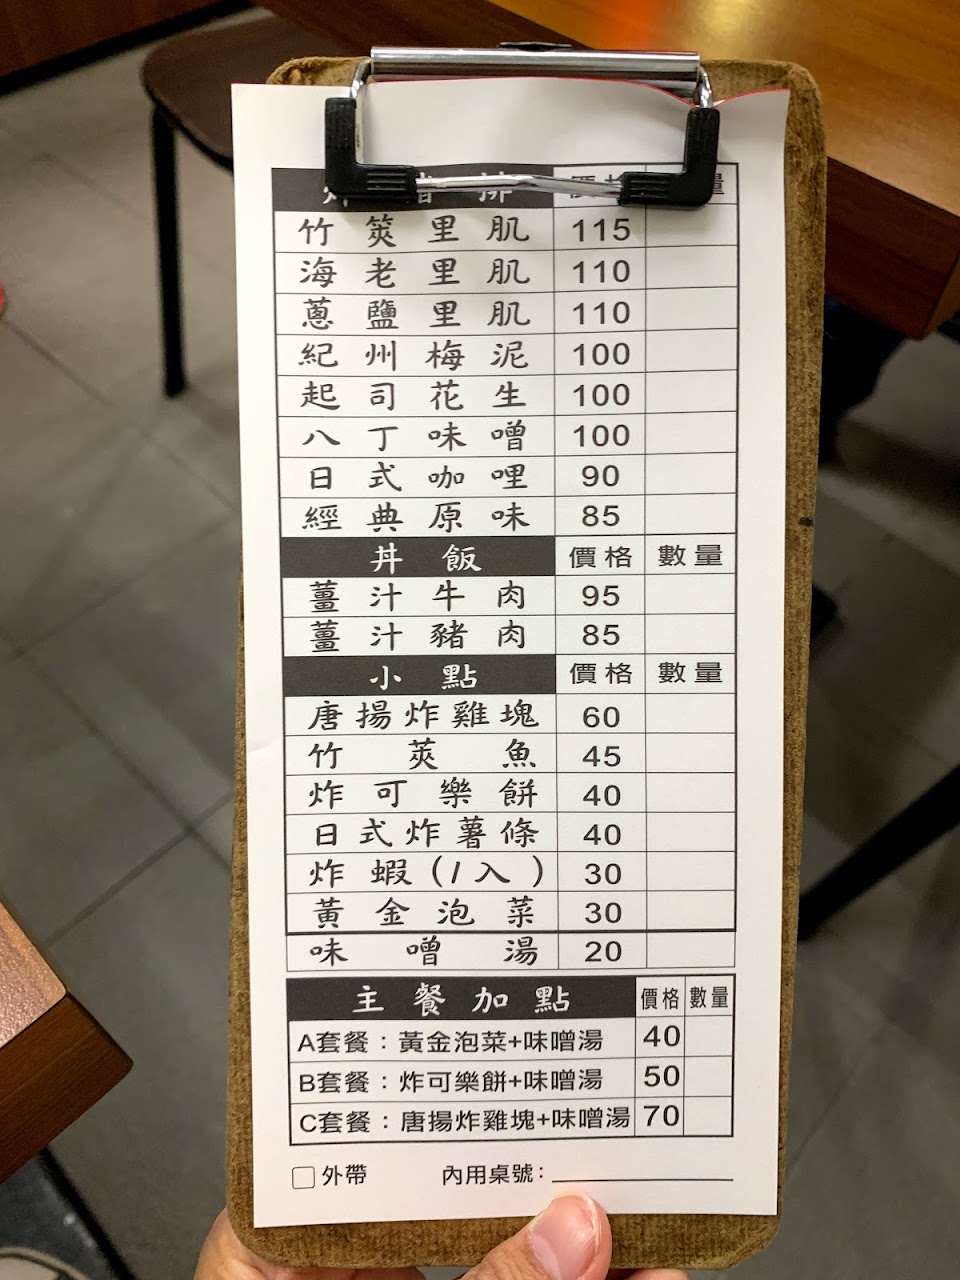 排
竹筴里肌 115
海老里肌 110
蔥鹽里肌 110
紀州梅泥 100
起司花生 100
八丁味噌 100
日式咖哩 90
經典原味 85
丼飯 價格 數量
薑汁牛肉 95
薑汁豬肉 85
小點 價格 數量
唐揚炸雞塊 60
竹莢魚 45
炸可樂餅 40
日式炸薯條 40
炸蝦(1入) 30
黃金泡菜 30
味噌湯 20
主餐加點 價格 數量
A套餐：黃金泡菜+味噌湯 40
B套餐：炸可樂餅+味噌湯 50
C套餐：唐揚炸雞塊+味噌湯 70
外帶 內用桌號：